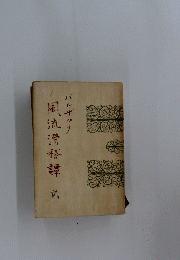 バルザック
風流滑稽譚